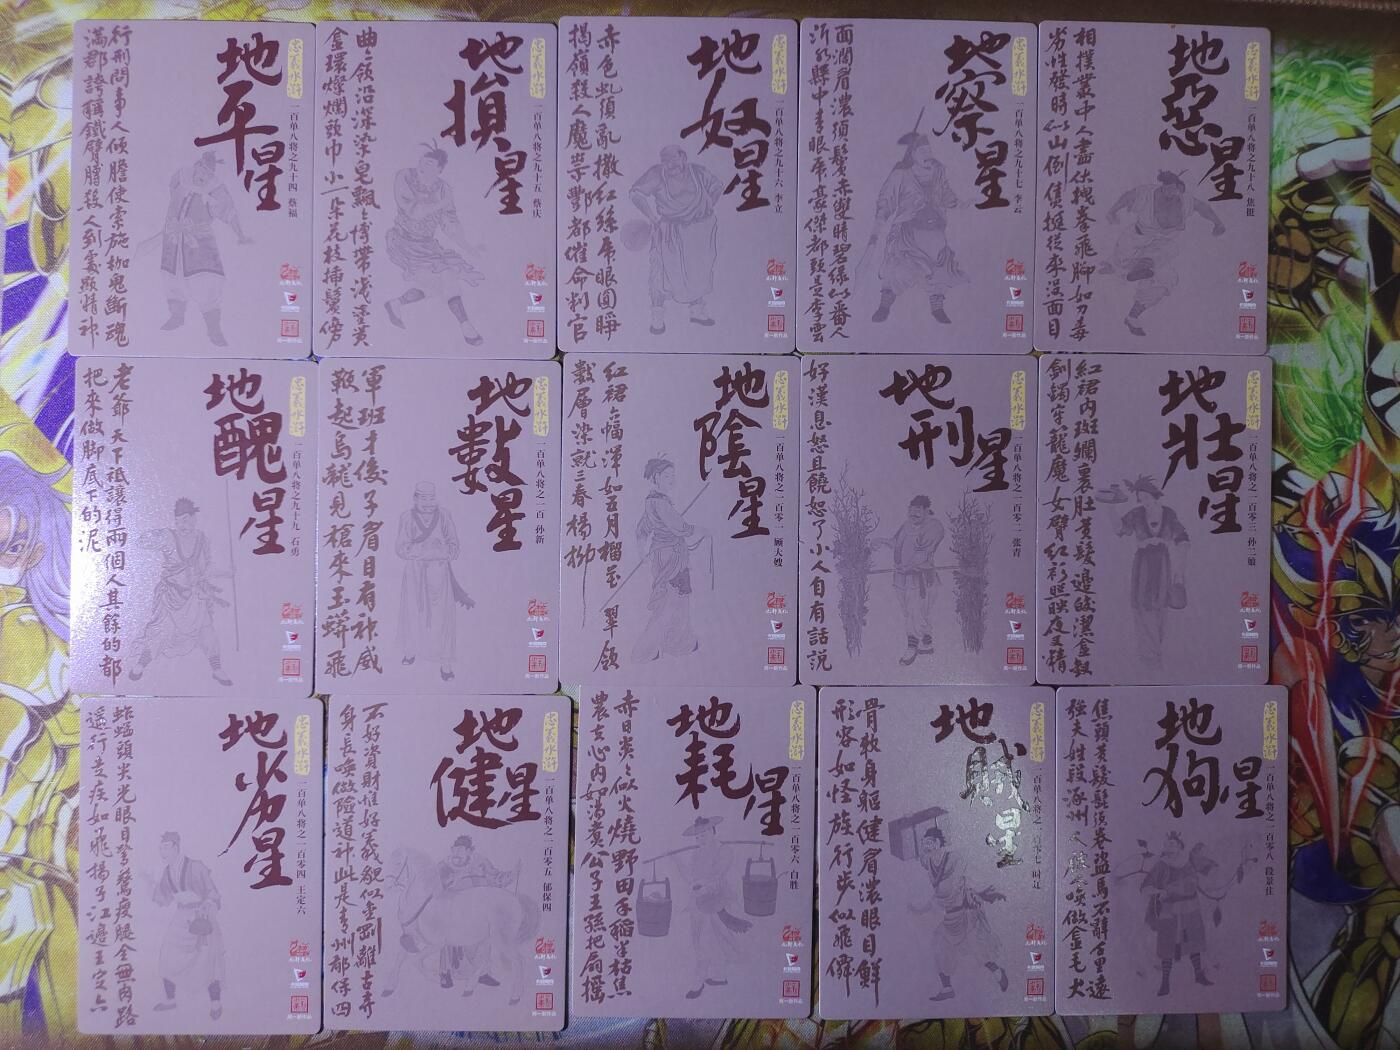 忠義水浒
地平星
一百单八将之九十四 蔡福
行刑問事人傾膽使索施枷鬼斷魂
滿郡誇稱鐵臂膊殺人到處顯精神
忠義水浒
地損星
一百单八将之九十五 蔡庆
曲〻領沿深染皂飄〻博帶淺塗黃
金環燦爛頭巾小一朵花枝插鬢傍
忠義水浒
地奴星
一百单八将之九十六 李立
赤色虬須亂撒紅絲虎眼圓睜
揭嶺殺人魔祟酆都催命判官
忠義水浒
地察星
一百单八将之九十七 李云
面闊眉濃須鬢赤雙睛碧綠似番人
沂水縣中青眼虎豪傑都頭是李雲
忠義水浒
地惡星
一百单八将之九十八 焦挺
相撲叢中人盡伏拽拳飛腳如刀毒
劣性發時似山倒焦挺從來沒面目
忠義水浒
地醜星
一百单八将之九十九 石勇
老爺天下祇讓得兩個人其餘的都
把來做腳底下的泥
忠義水浒
地數星
一百单八将之一百 孙新
軍班才俊子眉目有神威
鞭起烏龍見槍來玉蟒飛
忠義水浒
地陰星
一百单八将之一百零一 顾大嫂
紅裙六幅渾如五月榴花翠領
數層染就三春楊柳
忠義水浒
地刑星
一百单八将之一百零二 张青
好漢息怒且饒恕了小人自有話說
忠義水浒
地壮星
一百单八将之一百零三 孙二娘
紅裙內斑斕裹肚黃髮邊皎潔金釵
釧鐲牢籠魔女臂紅衫照映夜叉精
忠義水浒
地劣星
一百单八将之一百零四 王定六
蚱蜢頭尖光眼目鷺鶿瘦腿全無肉路
遙行走疾如飛揚子江邊王定六
忠義水浒
地健星
一百单八将之一百零五 郁保四
不好資財惟好義貌似金剛離古寺
身長喚做險道神此是青州郁保四
忠義水浒
地耗星
一百单八将之一百零六 白胜
赤日炎〻似火燒野田禾稻半枯焦
農夫心內如湯煮公子王孫把扇搖
忠義水浒
地賊星
一百单八将之一百零七 时迁
骨軟身軀健眉濃眼目鮮
形容如怪族行步似飛僊
忠義水浒
地狗星
一百单八将之一百零八 段景住
焦頭黃髮髭須卷盜馬不辭千里遠
強夫姓段涿州人 喚做金毛犬
周一新作品